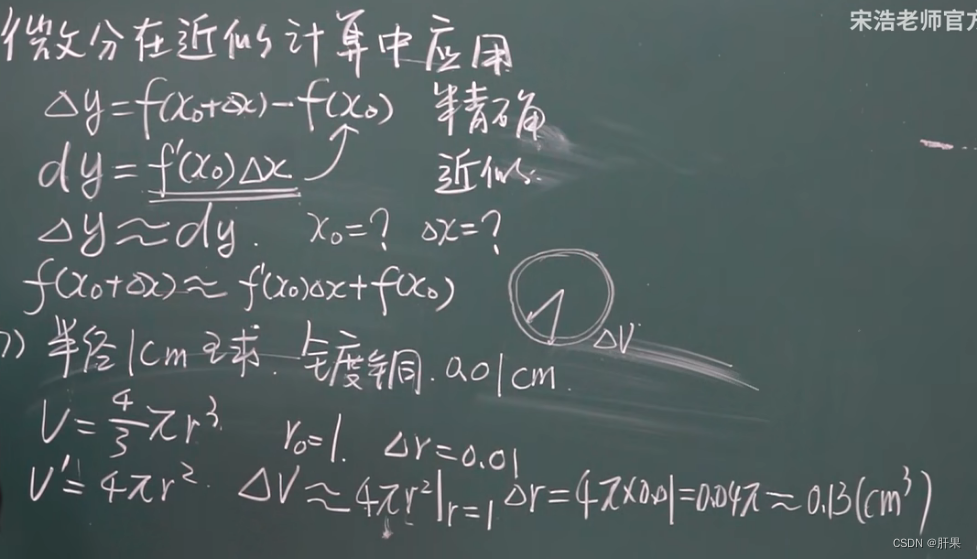 宋浩老师官方
微分在近似计算中应用
Δy=f(x₀+Δx)-f(x₀) 精确
dy=f'(x₀)Δx 近似
Δy≈dy. x₀=? Δx=?
f(x₀+Δx)≈f'(x₀)Δx+f(x₀)
ΔV
7) 半径1cm 球. 镀铜. 0.01cm.
V=4/3πr³ r₀=1. Δr=0.01
V'=4πr². ΔV≈4πr²|r=1 Δr=4π×0.01=0.04π≈0.13(cm³)
CSDN @肝果